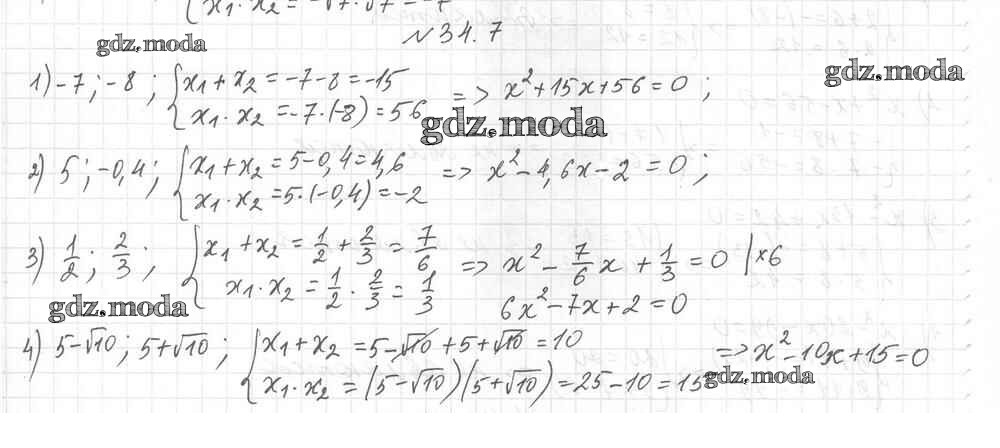 x₁·x₂ = -√7·√7 = -7
№34.7
gdz.moda
1) -7; -8; { x₁+x₂ = -7-8 = -15
x₁·x₂ = -7·(-8) = 56 => x²+15x+56=0;
gdz.moda
gdz.moda
2) 5; -0,4; { x₁+x₂ = 5-0,4=4,6
x₁·x₂ = 5·(-0,4) = -2 => x²-4,6x-2=0;
3) 1/2; 2/3; { x₁+x₂ = 1/2 + 2/3 = 7/6
x₁·x₂ = 1/2 · 2/3 = 1/3 => x² - 7/6 x + 1/3 = 0 |×6
6x²-7x+2=0
gdz.moda
4) 5-√10; 5+√10; { x₁+x₂ = 5-√10+5+√10 = 10
x₁·x₂ = (5-√10)(5+√10) = 25-10 = 15 => x²-10x+15=0
gdz.moda